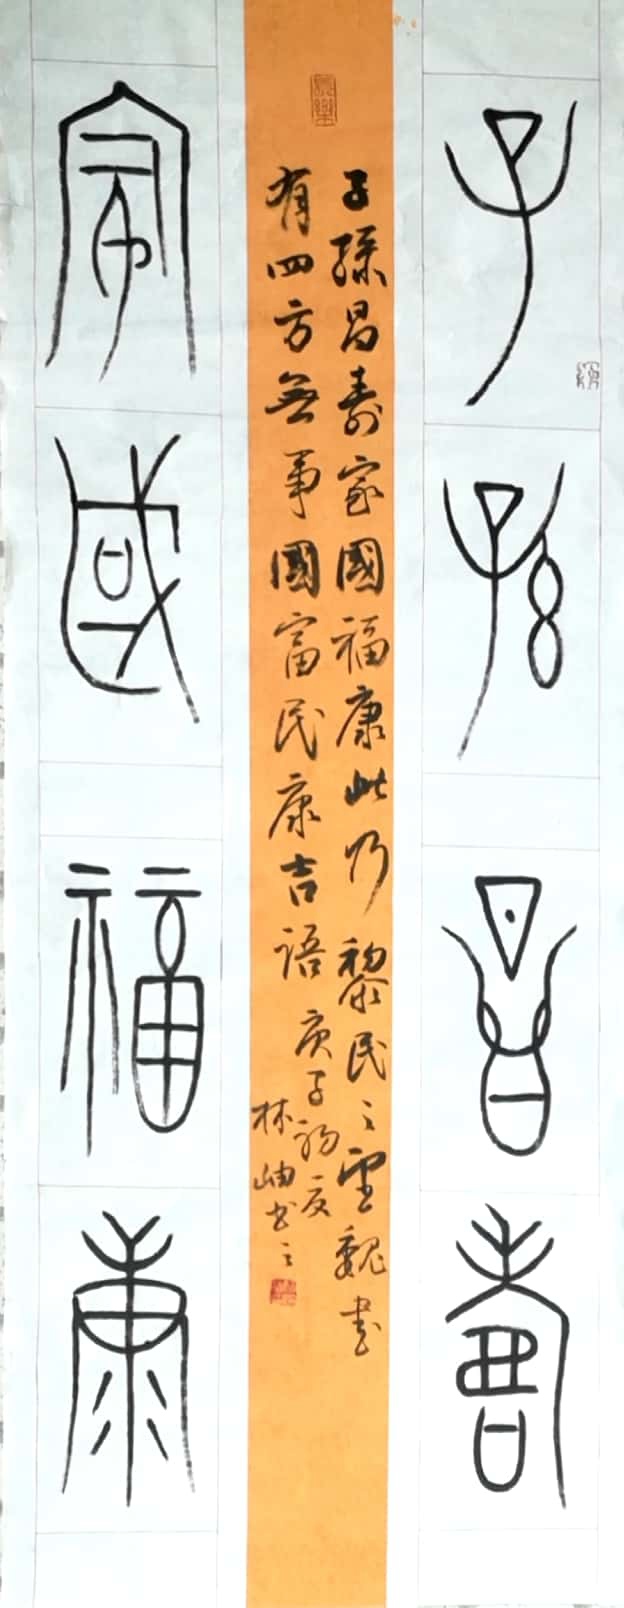 子孫昌壽
子孫昌壽家國福康此乃黎民之望魏書
有四方無事國富民康吉語庚子初夏
林岫書之
家國福康